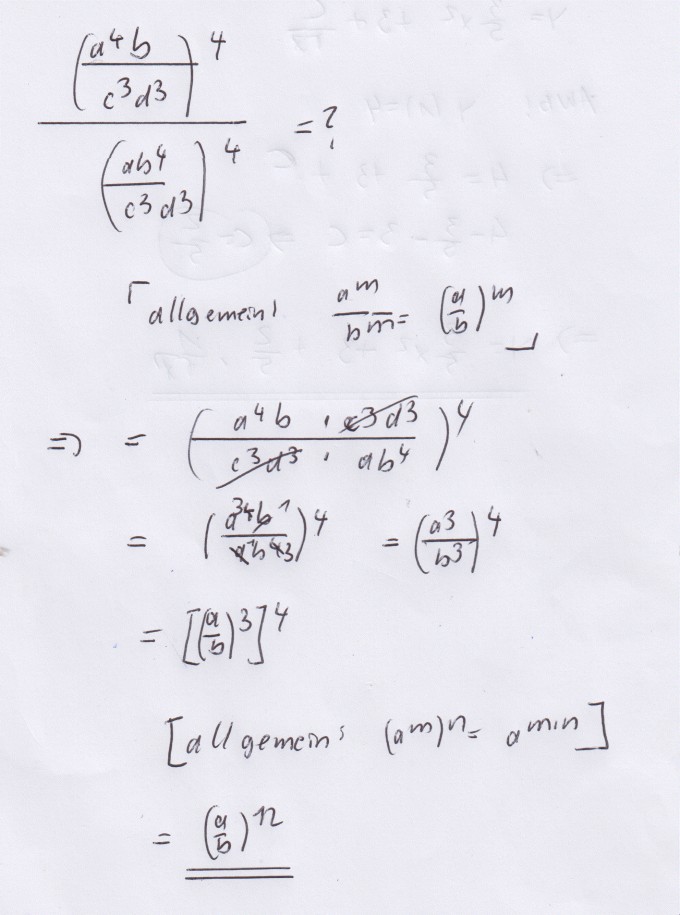 (a⁴b / c³d³)⁴ / (ab⁴ / c³d³)⁴ = ?
⌈allgemein: aᵐ / bᵐ = (a/b)ᵐ ⌋
=> = (a⁴b · c³d³ / c³d³ · ab⁴)⁴
= (a³⁴b¹ / a¹b⁴³)⁴ = (a³ / b³)⁴
= [(a/b)³]⁴
[allgemein: (aᵐ)ⁿ = aᵐ·ⁿ]
= (a/b)¹²